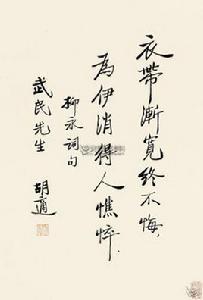 衣帶漸寬終不悔
為伊消得人憔悴
柳永詞句
武民先生
胡適